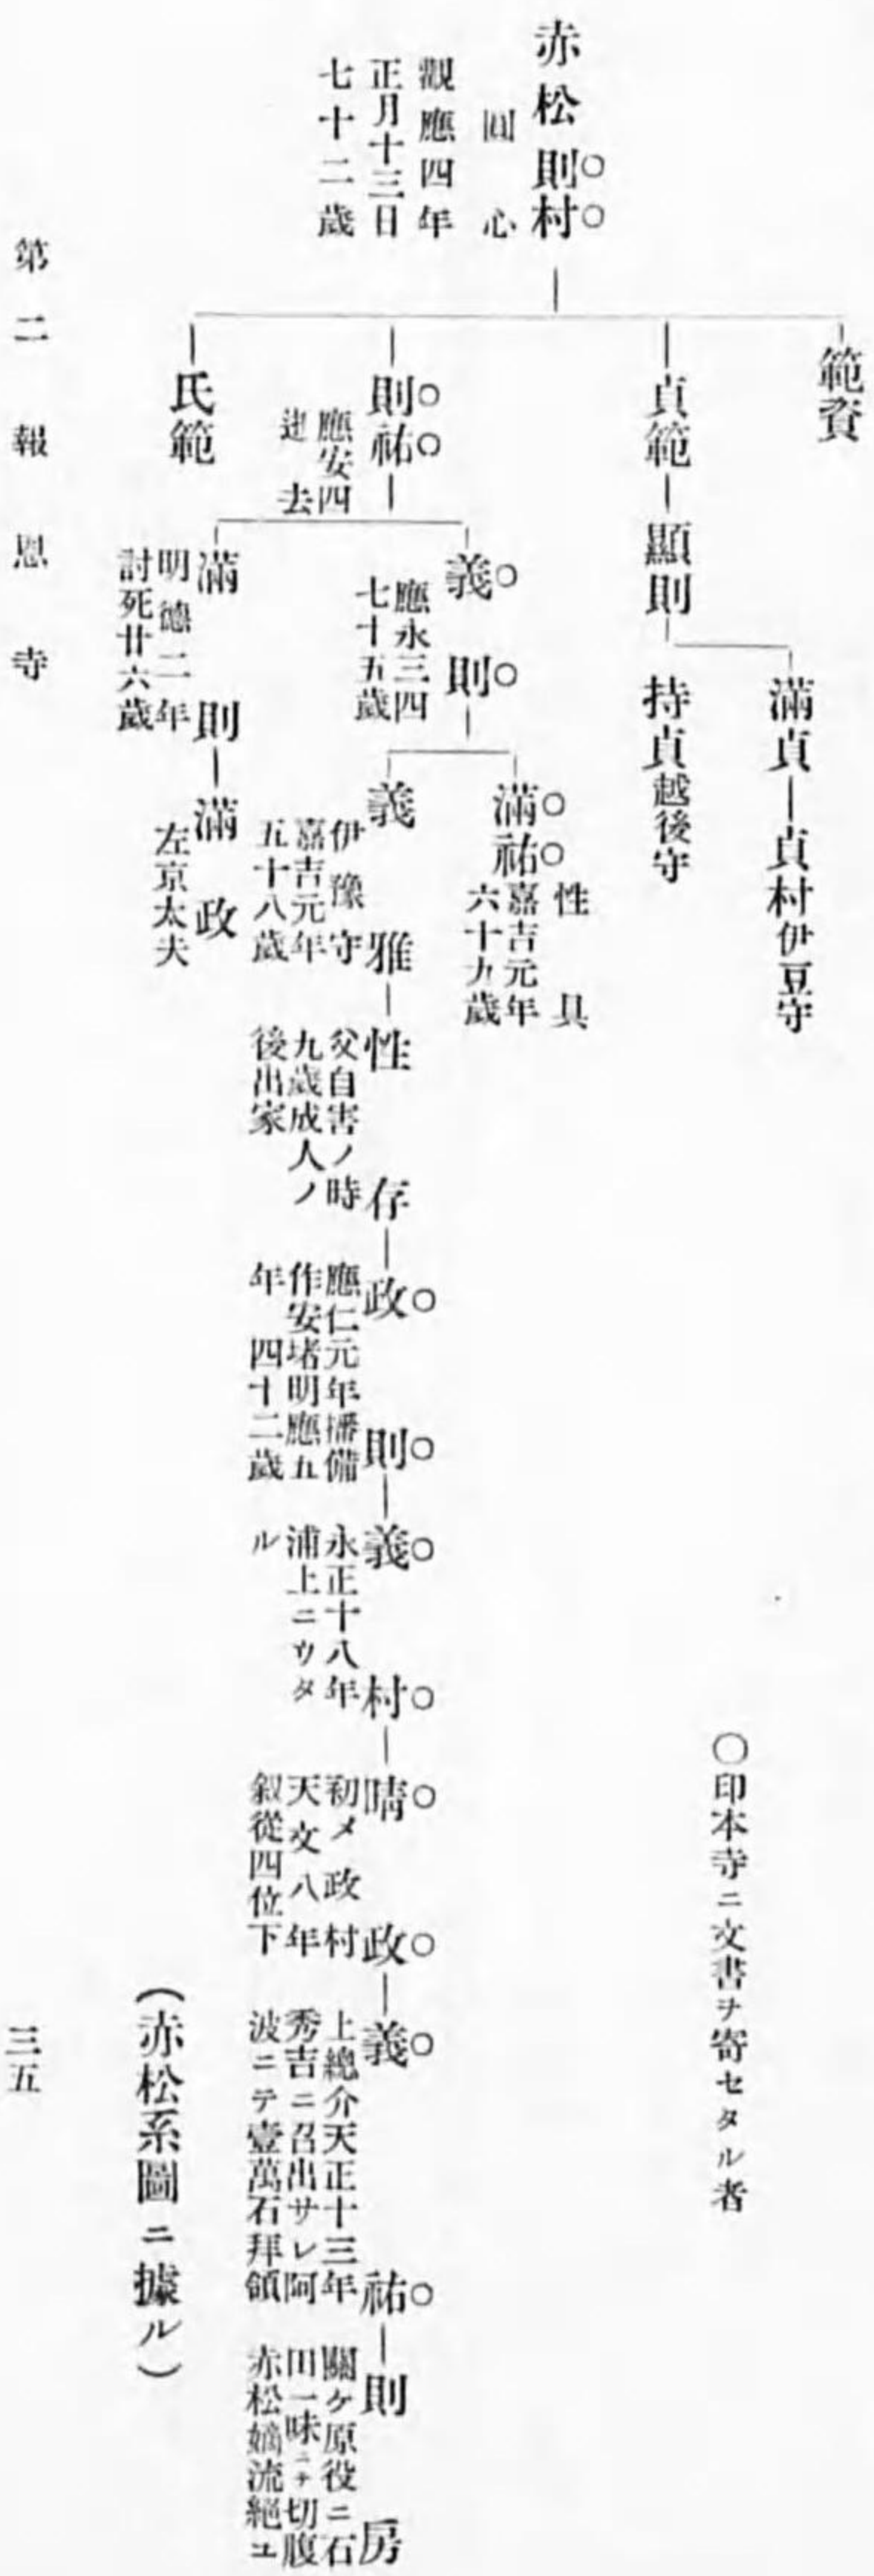 赤松則○村○
圓心
觀應四年
正月十三日
七十二歲
範資
貞範―顯則
滿貞―貞村伊豆守
持貞越後守
則○祐○
應安四
逝去
義○則○
應永三四
七十五歲
滿○祐○
性具
嘉吉元年
六十九歲
義雅―性存―政○則○―義○村○―晴○政○―義○祐○―則房
伊豫守
嘉吉元年
五十八歲
父自害ノ時
九歲成人ノ
後出家
應仁元年播備
作安堵明應五
年 四十二歲
永正十八年
浦上ニウタ
ル
初メ政村
天文八年
叙從四位下
上總介天正十三年
秀吉ニ召出サレ阿
波ニテ壹萬石拜領
關ケ原役ニ石
田一味ニテ切腹
赤松嫡流絕ユ
滿則―滿政
明德二年
討死廿六歲
左京太夫
氏範
○印本寺ニ文書ヲ寄セタル者
(赤松系圖ニ據ル)
第二 報恩寺
三五